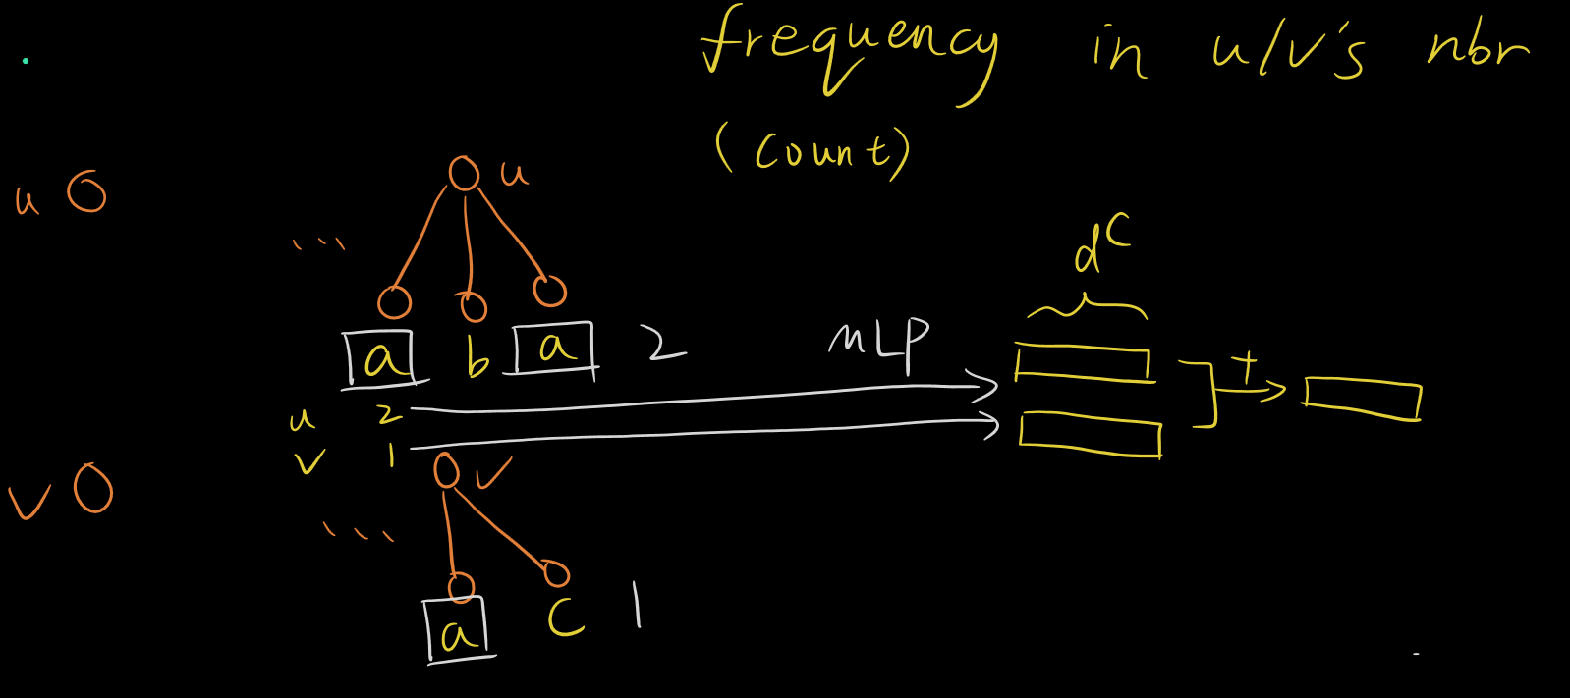 frequency in u/v's nbr
(count)
u
u
...
d^C
a b a 2 MLP
u 2
+
v 1
v
v
...
a c 1